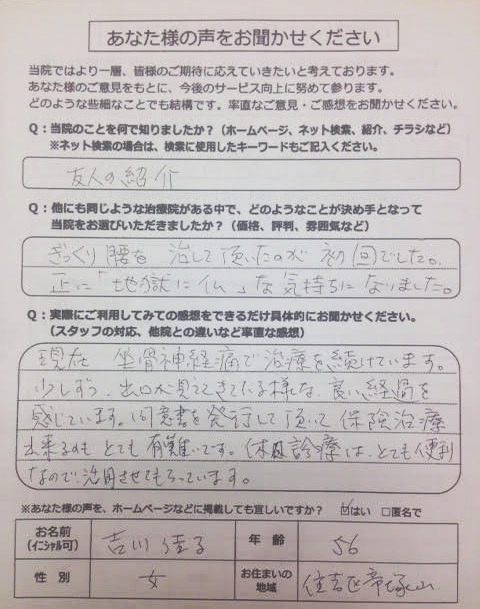 あなた様の声をお聞かせください
当院ではより一層、皆様のご期待に応えていきたいと考えております。
あなた様のご意見をもとに、今後のサービス向上に努めて参ります。
どのような些細なことでも結構です。率直なご意見・ご感想をお聞かせください。
Q:当院のことを何で知りましたか?(ホームページ、ネット検索、紹介、チラシなど)
※ネット検索の場合は、検索に使用したキーワードもご記入ください。
友人の紹介
Q:他にも同じような治療院がある中で、どのようなことが決め手となって
当院をお選びいただきましたか?(価格、評判、雰囲気など)
ぎっくり腰を治して頂いたのが初回でした。
正に「地獄に仏」な気持ちになりました。
Q:実際にご利用してみての感想をできるだけ具体的にお聞かせください。
(スタッフの対応、他院との違いなど率直な感想)
現在 坐骨神経痛で治療を続けています。
少しずつ、出口が見えてきている様な、良い経過を
感じています。同意書を発行して頂いて保険治療
出来るのもとても有難いです。休日診療は、とても便利
なので活用させてもらっています。
※あなた様の声を、ホームページなどに掲載しても宜しいですか? ☑はい □匿名で
お名前 吉川 る 年齢 56
(イニシャル可)
性別 女 お住まいの 住吉区帝塚山
地域